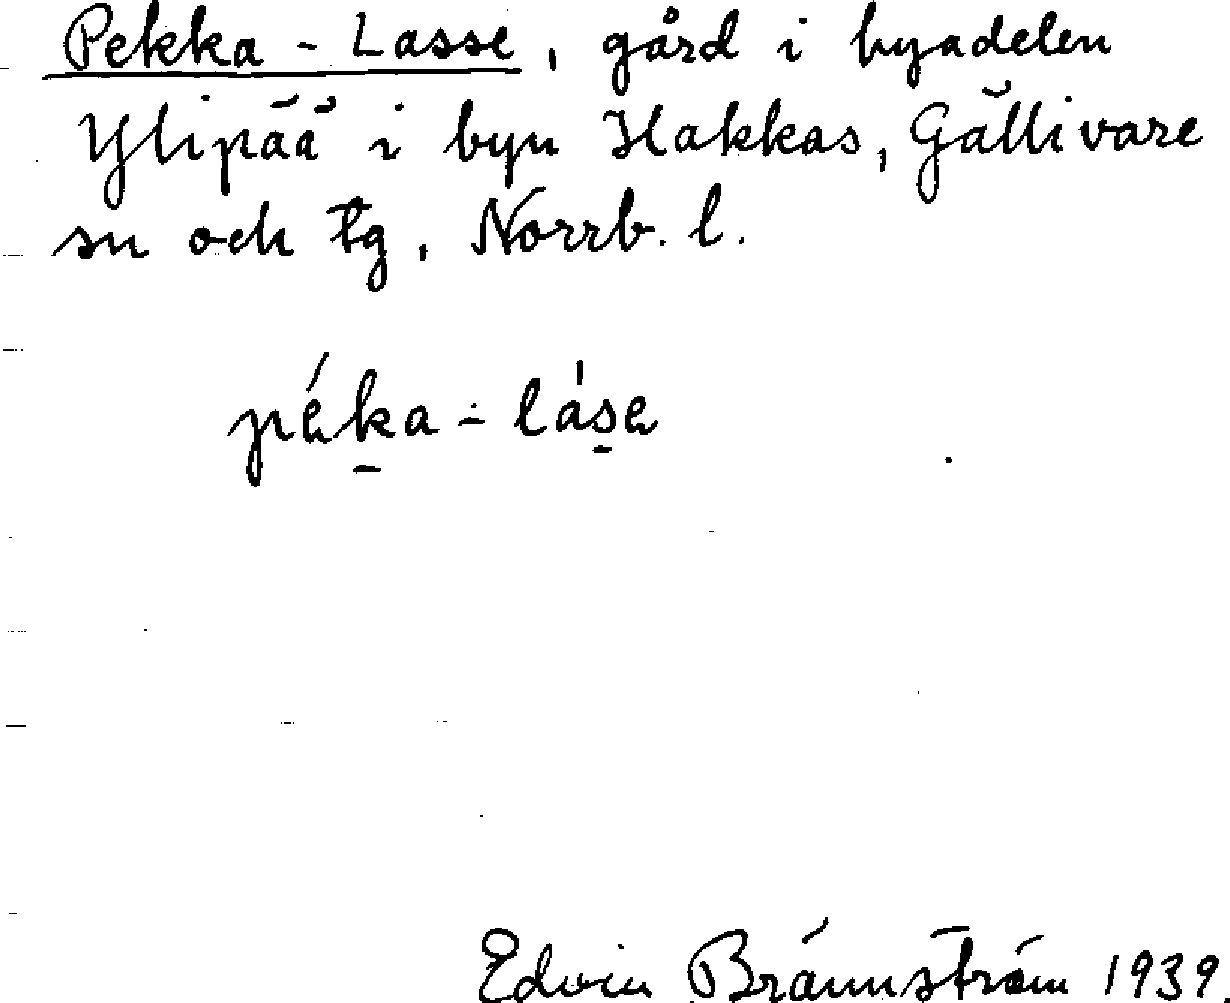 Pekka - Lasse, gård i byadelen
Ylipää i byn Hakkas, Gällivare
sn och tg, Norrb. l.
péka - láse
Edvin Brännström 1939